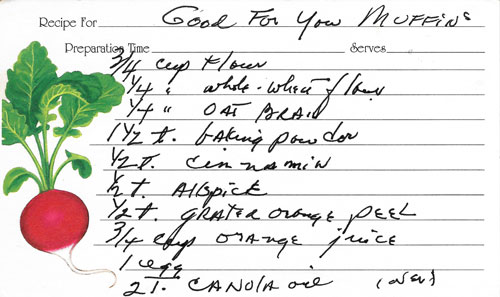 Recipe For Good For You Muffins
Preparation Time Serves
3/4 cup flour
1/4 " whole-wheat flour
1/4 " OAT BRAN
1 1/2 t. baking powder
1/2 t. cinnamin
1/2 t. Allspice
1/2 t. grated orange peel
3/4 cups orange juice
1 egg
2 T. CANOLA oil (over)